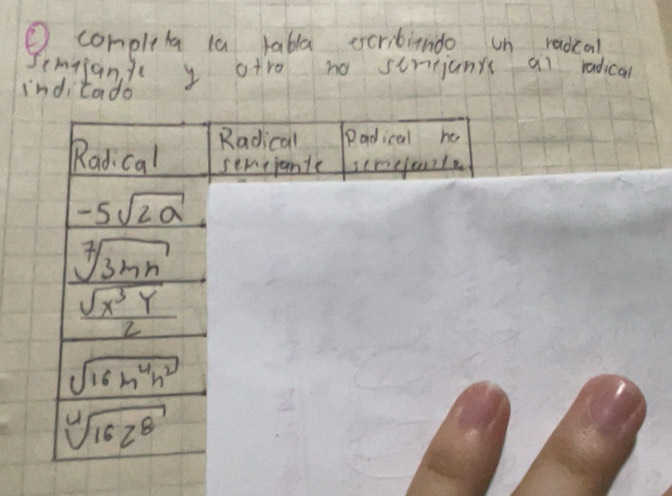 ② completa la tabla escribiendo un radical
semejante y otro no semejante al radical
indicado
Radical | Radical semejante | Radical no semejante
-5√2a
⁷√3mn
√x³Y / 2
√16m⁴n²
⁴√16z⁸